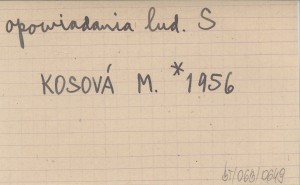 opowiadania lud. S
KOSOVÁ M. *1956
bT/069/0649